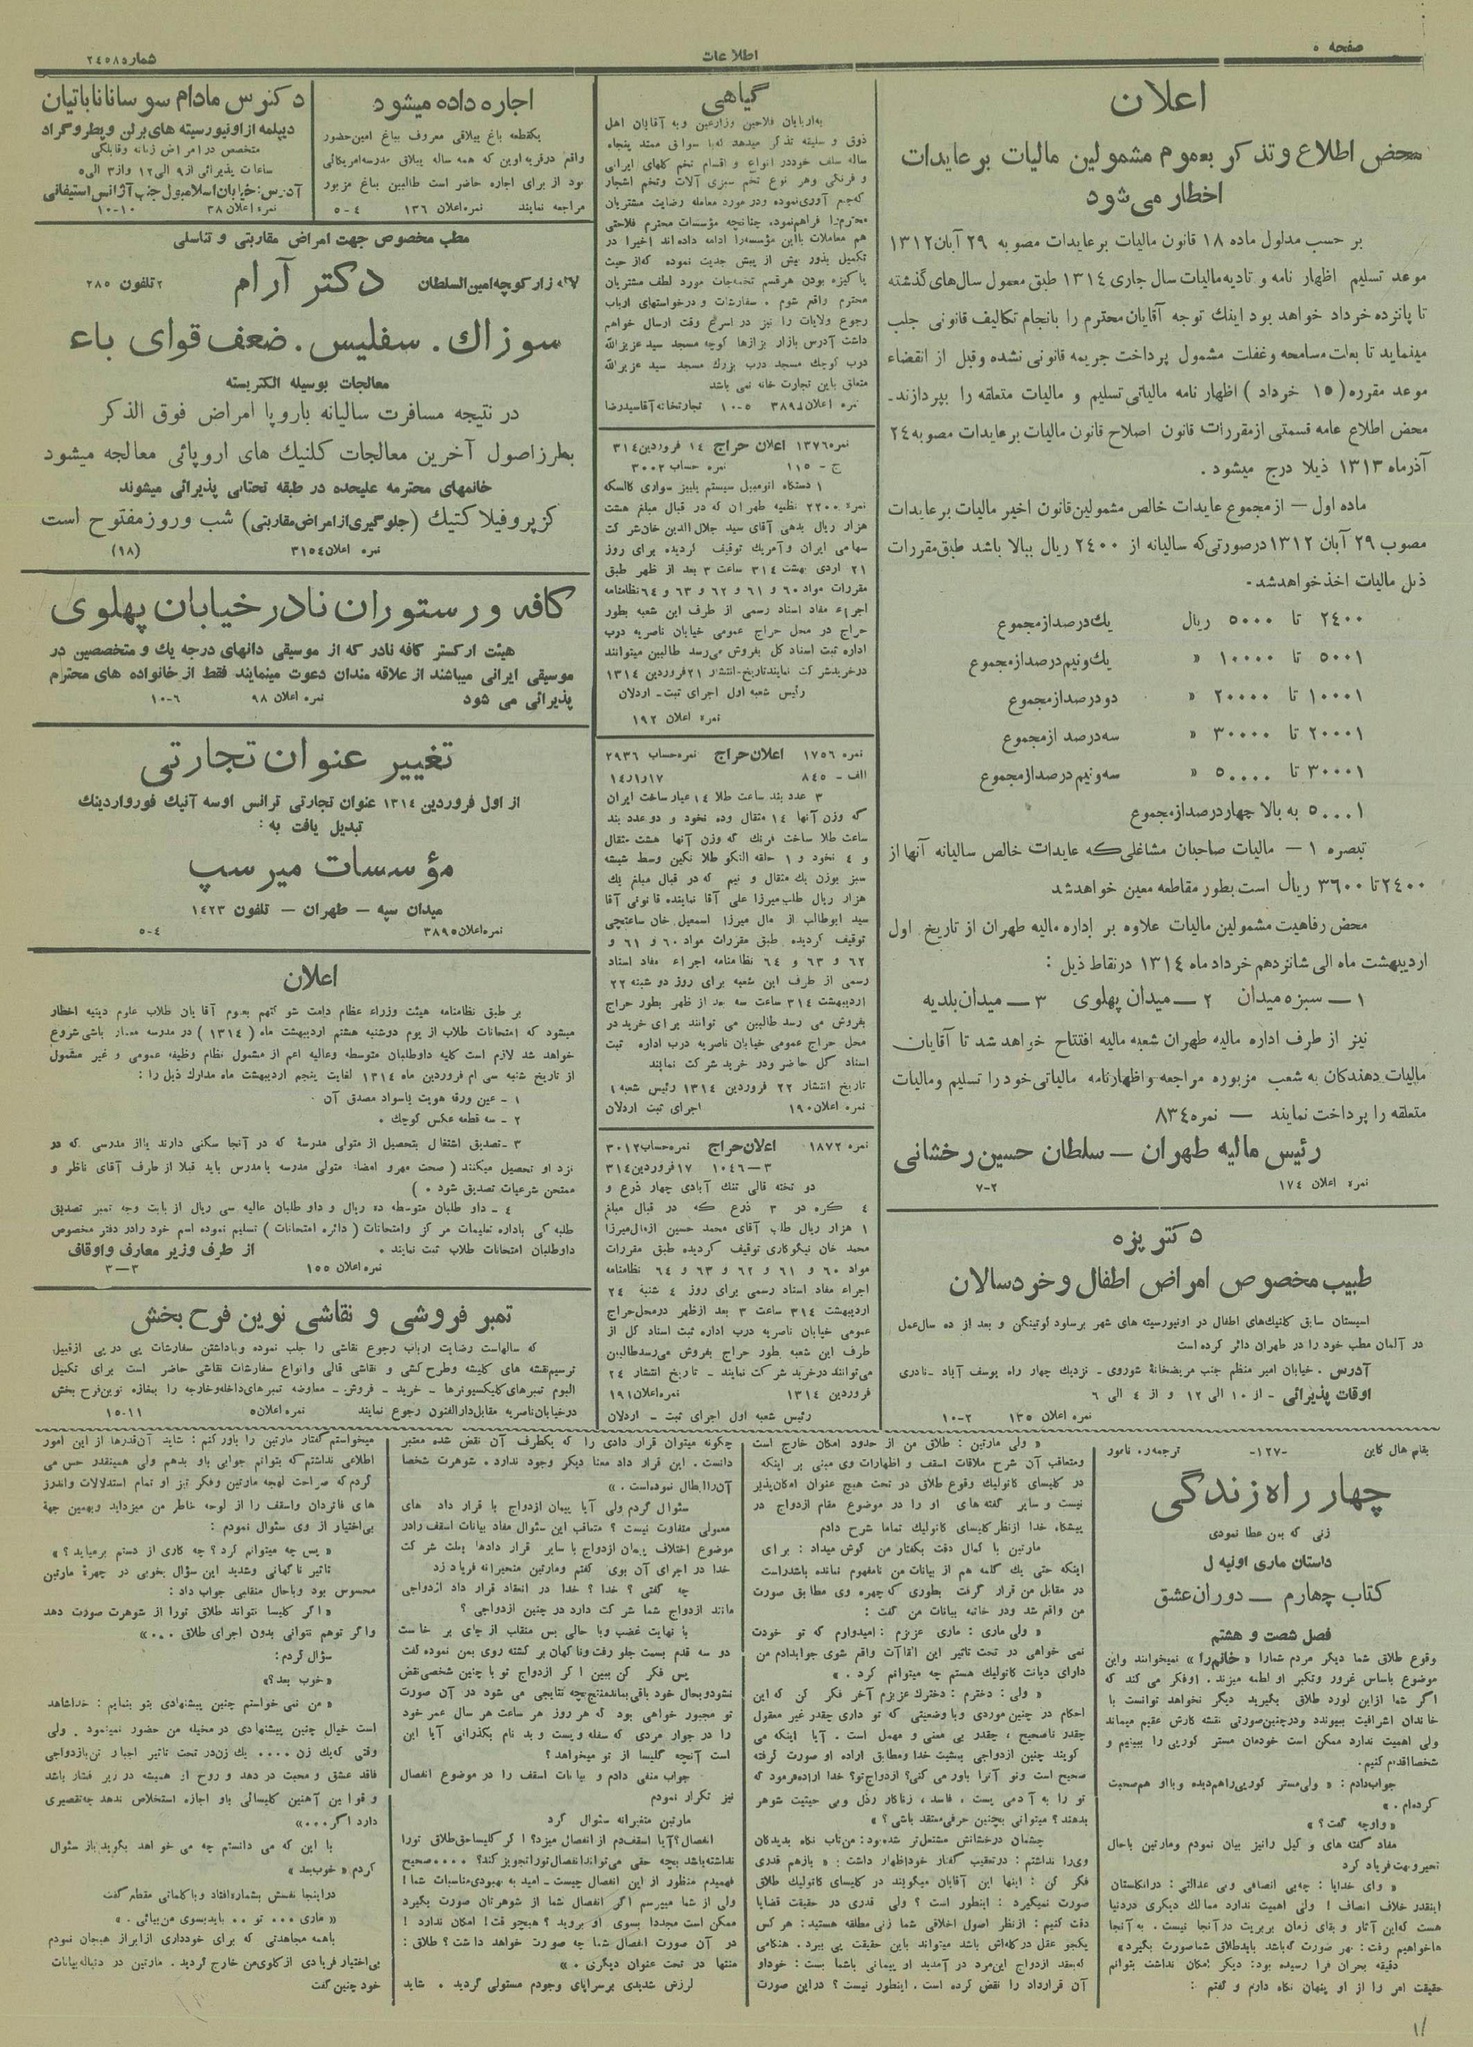 صفحه ۵
اطلاعات
شماره ۲۴۵۸
اعلان
محض اطلاع و تذکر بعموم مشمولین مالیات بر عایدات
اخطار می‌شود
بر حسب مدلول ماده ۱۸ قانون مالیات بر عایدات مصوبه ۲۹ آبان ۱۳۱۲
موعد تسلیم اظهار نامه و تادیه مالیات سال جاری ۱۳۱۴ طبق معمول سال‌های گذشته
تا پانزده خرداد خواهد بود اینك توجه آقایان محترم را بانجام تکالیف قانونی جلب
مینماید تا بعلت مسامحه و غفلت مشمول پرداخت جریمه قانونی نشده وقبل از انقضاء
موعد مقرره (۱۵ خرداد) اظهار نامه مالیاتی تسلیم و مالیات متعلقه را بپردازند.
محض اطلاع عامه قسمتی از مقررات قانون اصلاح قانون مالیات بر عایدات مصوبه ۲۴
آذرماه ۱۳۱۳ ذیلا درج میشود.
ماده اول — از مجموع عایدات خالص مشمولین قانون اخیر مالیات بر عایدات
مصوب ۲۹ آبان ۱۳۱۲ در صورتی که سالیانه از ۲۴۰۰ ریال ببالا باشد طبق مقررات
ذیل مالیات اخذ خواهد شد.
۲۴۰۰ تا ۵۰۰۰ ریال یك درصد از مجموع
۵۰۰۱ تا ۱۰۰۰۰ « یك و نیم درصد از مجموع
۱۰۰۰۱ تا ۲۰۰۰۰ « دو درصد از مجموع
۲۰۰۰۱ تا ۳۰۰۰۰ « سه درصد از مجموع
۳۰۰۰۱ تا ۵۰۰۰۰ « سه و نیم درصد از مجموع
۵۰۰۰۱ به بالا چهار درصد از مجموع
تبصره ۱ — مالیات صاحبان مشاغلی که عایدات خالص سالیانه آنها از
۲۴۰۰ تا ۳۶۰۰ ریال است بطور مقاطعه معین خواهد شد
محض رفاهیت مشمولین مالیات علاوه بر اداره مالیه طهران از تاریخ اول
اردیبهشت ماه الی شانزدهم خرداد ماه ۱۳۱۴ در نقاط ذیل :
۱ — سبزه میدان ۲ — میدان پهلوی ۳ — میدان بلدیه
نیز از طرف اداره مالیه طهران شعبه مالیه افتتاح خواهد شد تا آقایان
مالیات دهندگان به شعب مزبوره مراجعه و اظهارنامه مالیاتی خود را تسلیم و مالیات
متعلقه را پرداخت نمایند — نمره ۸۳۴
رئیس مالیه طهران — سلطان حسین رخشانی
نمره اعلان ۱۷۴ ۷-۲
دکتر یزه
طبیب مخصوص امراض اطفال و خردسالان
اسیستان سابق کلنیك‌های اطفال در اونیورسیته های شهر برسلو و گوتینگن و بعد از ده سال عمل
در آلمان مطب خود را در طهران دائر کرده است
آدرس . خیابان امیر منظم جنب مریضخانهٔ شوروی - نزدیك چهار راه یوسف آباد - نادری
اوقات پذیرائی - از ۱۰ الی ۱۲ و از ۴ الی ۶
نمره اعلان ۱۳۵ ۱۰-۲
گیاهی
باربابان فلاحین و زارعین و به آقایان اهل
ذوق و سلیقه تذکر میدهد که با سوابق ممتد پنجاه
ساله سلف خود در انواع و اقسام تخم گلهای ایرانی
و فرنگی وهر نوع تخم سبزی آلات و تخم اشجار
که جمع آوری نموده و در مورد معامله رضایت مشتریان
محترم را فراهم نمود. چنانچه مؤسسات محترم فلاحتی
هم معاملات با این مؤسسه را ادامه داده اند اخیرا در
تکمیل بذور بیش از پیش جدیت نموده که از حیث
پاکیزه بودن هر قسم تخمجات مورد لطف مشتریان
محترم واقع شوم . سفارشات و درخواستهای ارباب
رجوع ولایات را نیز در اسرع وقت ارسال خواهم
داشت آدرس بازار بزازها کوچه مسجد سید عزیزالله
درب کوچك مسجد درب بزرگ مسجد سید عزیزالله
متعلق باین تجارت خانه نمی باشد
نمره اعلان ۳۸۹۸ ۱۰-۵ تجارتخانه آقا سید رضا
نمره ۱۳۷۶ اعلان حراج ۱۴ فروردین ۳۱۴
ج - ۱۱۵ نمره حساب ۳۰۰۲
۱ دستگاه اتومبیل سیستم پلییز سواری کالسکه
نمره ۲۲۰۰ نظمیه طهران که در قبال مبلغ هشت
هزار ریال بدهی آقای سید جلال الدین خان شرکت
سهامی ایران و آمریك توقیف گردیده برای روز
۲۱ اردی بهشت ۳۱۴ ساعت ۳ بعد از ظهر طبق
مقررات مواد ۶۰ و ۶۱ و ۶۲ و ۶۳ و ۶۴ نظامنامه
اجراء مفاد اسناد رسمی از طرف این شعبه بطور
حراج در محل حراج عمومی خیابان ناصریه درب
اداره ثبت اسناد کل بفروش میرسد طالبین میتوانند
در خرید شرکت نمایند تاریخ انتشار ۲۱ فروردین ۱۳۱۴
رئیس شعبه اول اجرای ثبت - اردلان
نمره اعلان ۱۹۲
نمره ۱۷۵۶ اعلان حراج نمره حساب ۲۹۳۶
الف - ۸۴۵ ۱۴/۱/۱۷
۳ عدد بند ساعت طلا ۱۴ عیار ساخت ایران
که وزن آنها ۱۴ مثقال و ده نخود و دو عدد بند
ساعت طلا ساخت فرنگ که وزن آنها هشت مثقال
و ۴ نخود و ۱ حلقه النگو طلا نگین وسط شیشه
سبز بوزن یك مثقال و نیم که در قبال مبلغ یك
هزار ریال طلب میرزا علی آقا نماینده قانونی آقا
سید ابوطالب از مال میرزا اسمعیل خان ساعتچی
توقیف گردیده طبق مقررات مواد ۶۰ و ۶۱ و
۶۲ و ۶۳ و ۶۴ نظامنامه اجراء مفاد اسناد
رسمی از طرف این شعبه برای روز دو شنبه ۲۲
اردیبهشت ۳۱۴ ساعت سه بعد از ظهر بطور حراج
بفروش می رسد طالبین می توانند برای خرید در
محل حراج عمومی خیابان ناصریه درب اداره ثبت
اسناد کل حاضر و در خرید شرکت نمایند
تاریخ انتشار ۲۲ فروردین ۱۳۱۴ رئیس شعبه ۱
نمره اعلان ۱۹۰ اجرای ثبت اردلان
نمره ۱۸۷۲ اعلان حراج نمره حساب ۳۰۱۲
۳—۱۰۴۶ ۱۷ فروردین ۳۱۴
دو تخته قالی تنك آبادی چهار ذرع و
۴ گره در ۳ ذرع که در قبال مبلغ
۱ هزار ریال طلب آقای محمد حسین از مال میرزا
محمد خان نیکوکاری توقیف گردیده طبق مقررات
مواد ۶۰ و ۶۱ و ۶۲ و ۶۳ و ۶۴ نظامنامه
اجراء مفاد اسناد رسمی برای روز ۴ شنبه ۲۴
اردیبهشت ۳۱۴ ساعت ۳ بعد از ظهر در محل حراج
عمومی خیابان ناصریه درب اداره ثبت اسناد کل از
طرف این شعبه بطور حراج بفروش میرسد طالبین
می‌توانند در خرید شرکت نمایند - تاریخ انتشار ۲۴
فروردین ۱۳۱۴ نمره اعلان ۱۹۱
رئیس شعبه اول اجرای ثبت - اردلان
اجاره داده میشود
یکقطعه باغ ییلاقی معروف بباغ امین حضور
واقع در قریه اوین که همه ساله ییلاق مدرسه امریکائی
بود از برای اجاره حاضر است طالبین بباغ مزبور
مراجعه نمایند نمره اعلان ۱۳۶ ۵-۴
دکترس مادام سوسانا ناباتیان
دیپلمه از اونیورسیته های برلن و پطروگراد
متخصص در امراض زنانه و قابلگی
ساعات پذیرائی از ۹ الی ۱۲ و از ۳ الی ۵
آدرس : خیابان اسلامبول جنب آژانس استیفانی
نمره اعلان ۳۸ ۱۰-۱۰
مطب مخصوص جهت امراض مقاربتی و تناسلی
لاله زار کوچه امین السلطان دکتر آرام تلفون ۲۸۵
سوزاك . سفلیس . ضعف قوای باء
معالجات بوسیله الکتریسته
در نتیجه مسافرت سالیانه باروپا امراض فوق الذکر
بطرز اصول آخرین معالجات کلنیك های اروپائی معالجه میشود
خانمهای محترمه علیحده در طبقه تحتانی پذیرائی میشوند
کزپروفیلاکتیك (جلوگیری از امراض مقاربتی) شب و روز مفتوح است
نمره اعلان ۳۱۵۴ (۱۸)
کافه و رستوران نادر خیابان پهلوی
هیئت ارکستر کافه نادر که از موسیقی دانهای درجه یك و متخصصین در
موسیقی ایرانی میباشند از علاقه مندان دعوت مینمایند فقط از خانواده های محترم
پذیرائی می شود نمره اعلان ۹۸ ۱۰-۶
تغییر عنوان تجارتی
از اول فروردین ۱۳۱۴ عنوان تجارتی ترانس اوسه آنیك فورواردینك
تبدیل یافت به :
مؤسسات میرسپ
میدان سپه - طهران - تلفون ۱۴۲۳
نمره اعلان ۳۸۹۵ ۵-۴
اعلان
بر طبق نظامنامه هیئت وزراء عظام دامت شوکتهم بعموم آقایان طلاب علوم دینیه اخطار
میشود که امتحانات طلاب از یوم دوشنبه هشتم اردیبهشت ماه (۱۳۱۴) در مدرسه معمار باشی شروع
خواهد شد لازم است کلیه داوطلبان متوسطه و عالیه اعم از مشمول نظام وظیفه عمومی و غیر مشمول
از تاریخ شنبه سی ام فروردین ماه ۱۳۱۴ لغایت پنجم اردیبهشت ماه مدارك ذیل را :
۱ - عین ورقه هویت یا سواد مصدق آن
۲ - سه قطعه عکس کوچك .
۳ - تصدیق اشتغال بتحصیل از متولی مدرسهٔ که در آنجا سکنی دارند یا از مدرسی که در
نزد او تحصیل میکنند (صحت مهر و امضاء متولی مدرسه یا مدرس باید قبلا از طرف آقای ناظر و
ممتحن شرعیات تصدیق شود .)
۴ - داو طلبان متوسطه ده ریال و داو طلبان عالیه سی ریال از بابت وجه تمبر تصدیق
طلبه گی باداره تعلیمات مرکز و امتحانات (دائره امتحانات) تسلیم نموده اسم خود را در دفتر مخصوص
داوطلبان امتحانات طلاب ثبت نمایند. از طرف وزیر معارف و اوقاف
نمره اعلان ۱۵۵ ۳—۳
تمبر فروشی و نقاشی نوین فرح بخش
که سالهاست رضایت ارباب رجوع نقاشی را جلب نموده و با داشتن سفارشات پی در پی از قبیل
ترسیم نقشه های کلیشه و طرح کشی و نقاشی قالی و انواع سفارشات نقاشی حاضر است برای تکمیل
آلبوم تمبرهای کلکسیونرها - خرید - فروش - معاوضه تمبرهای داخله و خارجه را بمغازه نوین فرح بخش
در خیابان ناصریه مقابل دارالفنون رجوع نمایند نمره اعلان ۵ ۱۵-۱۱
بقلم هال کاین -۱۲۷- ترجمه ر. نامور
چهار راه زندگی
زنی که بمن عطا نمودی
داستان ماری اونیه ل
کتاب چهارم — دوران عشق
فصل شصت و هشتم
وقوع طلاق شما دیگر مردم شما را «خانم را» نمیخوانند واین
موضوع باساس غرور وتکبر او لطمه میزند. او فکر می کند که
اگر شما از این لورد طلاق بگیرید دیگر نخواهد توانست با
خاندان اشرافیت بپیوندد و در چنین صورتی نقشه کارش عقیم میماند
ولی اهمیت ندارد ممکن است خودمان مستر کوریی را ببینیم و
شخصا اقدام کنیم.
جوابدادم : «ولی مستر کوریی را هم دیده و با او هم صحبت
کرده‌ام . »
«و او چه گفت؟»
مفاد گفته های و کیل را نیز بیان نمودم و مارتین با حال
تحیر وبهت فریاد کرد
«وای خدایا : چه بی انصافی وبی عدالتی : در انگلستان
اینقدر خلاف انصاف ! ولی اهمیت ندارد ممالك دیگری در دنیا
هست که این آثار و بقای زمان بربریت در آنجا نیست . به آنجا
ها خواهیم رفت : بهر صورت که باشد باید طلاق شما صورت بگیرد»
دقیقه بحران فرا رسیده بود : دیگر ممکن نداشت بتوانم
حقیقت امر را از او پنهان نگاه دارم و گفتم :
«ولی مارتین : طلاق من از حدود امکان خارج است
ومتعاقب آن شرح ملاقات اسقف و اظهارات وی مبنی بر اینکه
در کلیسای کاتولیك وقوع طلاق در تحت هیچ عنوان امکان پذیر
نیست و سایر گفته های او را در موضوع مقام ازدواج در
پیشگاه خدا از نظر کلیسای کاتولیك تماما شرح دادم
مارتین با کمال دقت بگفتار من گوش میداد : برای
اینکه حتی یك کلمه هم از بیانات من نامفهوم نمانده باشد راست
در مقابل من قرار گرفت بطوری که چهره وی مطابق صورت
من واقع شد ودر خاتمه بیانات من گفت :
«ولی ماری : ماری عزیزم : امیدوارم که تو خودت
نمی خواهی در تحت تاثیر این القاآت واقع شوی جوابدادم من
دارای دیانت کاتولیك هستم چه میتوانم کرد . »
«ولی : دخترم : دخترك عزیزم آخر فکر کن که این
احکام در چنین موردی و با وضعیتی که تو داری چقدر غیر معقول
چقدر ناصحیح ، چقدر بی معنی و مهمل است . آیا اینکه می
گویند چنین ازدواجی بمشیت خدا ومطابق اراده او صورت گرفته
صحیح است وتو آنرا باور می کنی؟ ازدواج تو؟ خدا اراده فرمود که
تو را به آدمی پست ، فاسد ، زناکار رذل وبی حیثیت شوهر
بدهند ؟ میتوانی بچنین حرفی معتقد باشی ؟ »
چشمان درخشانش مشتعل‌تر شده بود : من تاب نگاه بدیدگان
وی را نداشتم : در تعقیب گفتار خود اظهار داشت : «باز هم قدری
فکر کن : اینها این آقایان میگویند در کلیسای کاتولیك طلاق
صورت نمیگیرد : اینطور است ؟ ولی قدری در حقیقت قضایا
دقت کنیم : از نظر اصول اخلاقی شما زنی مطلقه هستید : هر کس
یکجو عقل در کله‌اش باشد میتواند باین حقیقت پی ببرد. هنگامی
که بعقد ازدواج این مرد در آمدید او پیمانی باشما بست : خود او
آن قرارداد را نقض کرده است . اینطور نیست ؟ در این صورت
چگونه میتوان قرار دادی را که یکطرف آن نقض شده معتبر
دانست . این قرار داد معنا دیگر وجود ندارد. شوهرت شخصا
آن را ابطال نموده است . »
سئوال کردم ولی آیا پیمان ازدواج با قرار داد های
معمولی متفاوت نیست ؟ متعاقب این سئوال مفاد بیانات اسقف را در
موضوع اختلاف پیمان ازدواج با سایر قرار دادها بعلت شرکت
خدا در اجرای آن بوی گفتم ومارتین متحیرانه فریاد زد
چه گفتی ؟ خدا ؟ خدا در انعقاد قرار داد ازدواجی
مانند ازدواج شما شرکت دارد در چنین ازدواجی ؟
با نهایت غضب و با حالی بس منقلب از جای بر خاست
دو سه قدم بسمت جلو رفت و ناگهان بر گشته روی بمن نموده گفت
پس فکر کن ببین اگر ازدواج تو با چنین شخصی نقض
نشود و بحال خود باقی بماند منتج چه نتایجی می شود در آن صورت
تو مجبور خواهی بود که هر روز هر ساعت هر سال عمر خود
را در جوار مردی که سفله و پست و بد نام بگذرانی آیا این
است آنچه کلیسا از تو میخواهد ؟
جواب منفی دادم و بیانات اسقف را در موضوع انفصال
نیز تکرار نمودم
مارتین متغیرانه سئوال کرد
انفصال؟ آیا اسقف دم از انفصال میزد؟ اگر کلیسا حق طلاق تو را
نداشته باشد بچه حقی می‌تواند انفصال تو را تجویز کند؟ .... صحیح
فهمیدم منظور از این انفصال چیست - امید به بهبودی مناسبات شما !
ولی از شما میپرسم اگر انفصال شما از شوهرتان صورت بگیرد
ممکن است مجددا بسوی او بروید ؟ هیچوقت ! امکان ندارد !
در آن صورت انفصال شما چه صورت خواهد داشت ؟ طلاق :
منتها در تحت عنوان دیگری . »
لرزش شدیدی بر سراپای وجودم مستولی گردید . شاید
میخواستم گفتار مارتین را باور کنم : شاید آن قدرها از این امور
اطلاعی نداشتم که بتوانم جوابی باو بدهم ولی همینقدر حس می
کردم که صراحت لهجه مارتین و فکر تیز او تمام استدلالات و اندرز
های فائردان واسقف را از لوحه خاطر من میزداید و بهمین جهة
بی‌اختیار از وی سئوال نمودم :
«پس چه میتوانم کرد؟ چه کاری از دستم برمیاید ؟ »
تاثیر ناگهانی وشدید این سؤال بخوبی در چهرهٔ مارتین
محسوس بود و با حال منقلبی جواب داد :
«اگر کلیسا نتواند طلاق تو را از شوهرت صورت دهد
واگر تو هم نتوانی بدون اجرای طلاق ...»
سؤال کردم :
«خوب بعد؟»
«من نمی خواستم چنین پیشنهادی بتو بنمایم : خدا شاهد
است خیال چنین پیشنهادی در مخیله من حضور نمینمود . ولی
وقتی که یك زن .... یك زن در تحت تاثیر اجبار تن بازدواجی
فاقد عشق و محبت در دهد و روح از همیشه در زیر فشار باشد
و قوا این آهنین کلیسائی باو اجازه استخلاص ندهد چه تقصیری
دارد اگر...»
با این که می دانستم چه می خواهد بگوید باز سئوال
کردم «خوب بعد»
در اینجا نفسش بشماره افتاد و با کلماتی مقطع گفت
«ماری ... تو .. باید بسوی من بیائی . »
با همه مجاهدتی که برای خودداری از ابراز هیجان نمودم
بی‌اختیار فریادی از گلوی من خارج گردید. مارتین در دنباله بیانات
خود چنین گفت